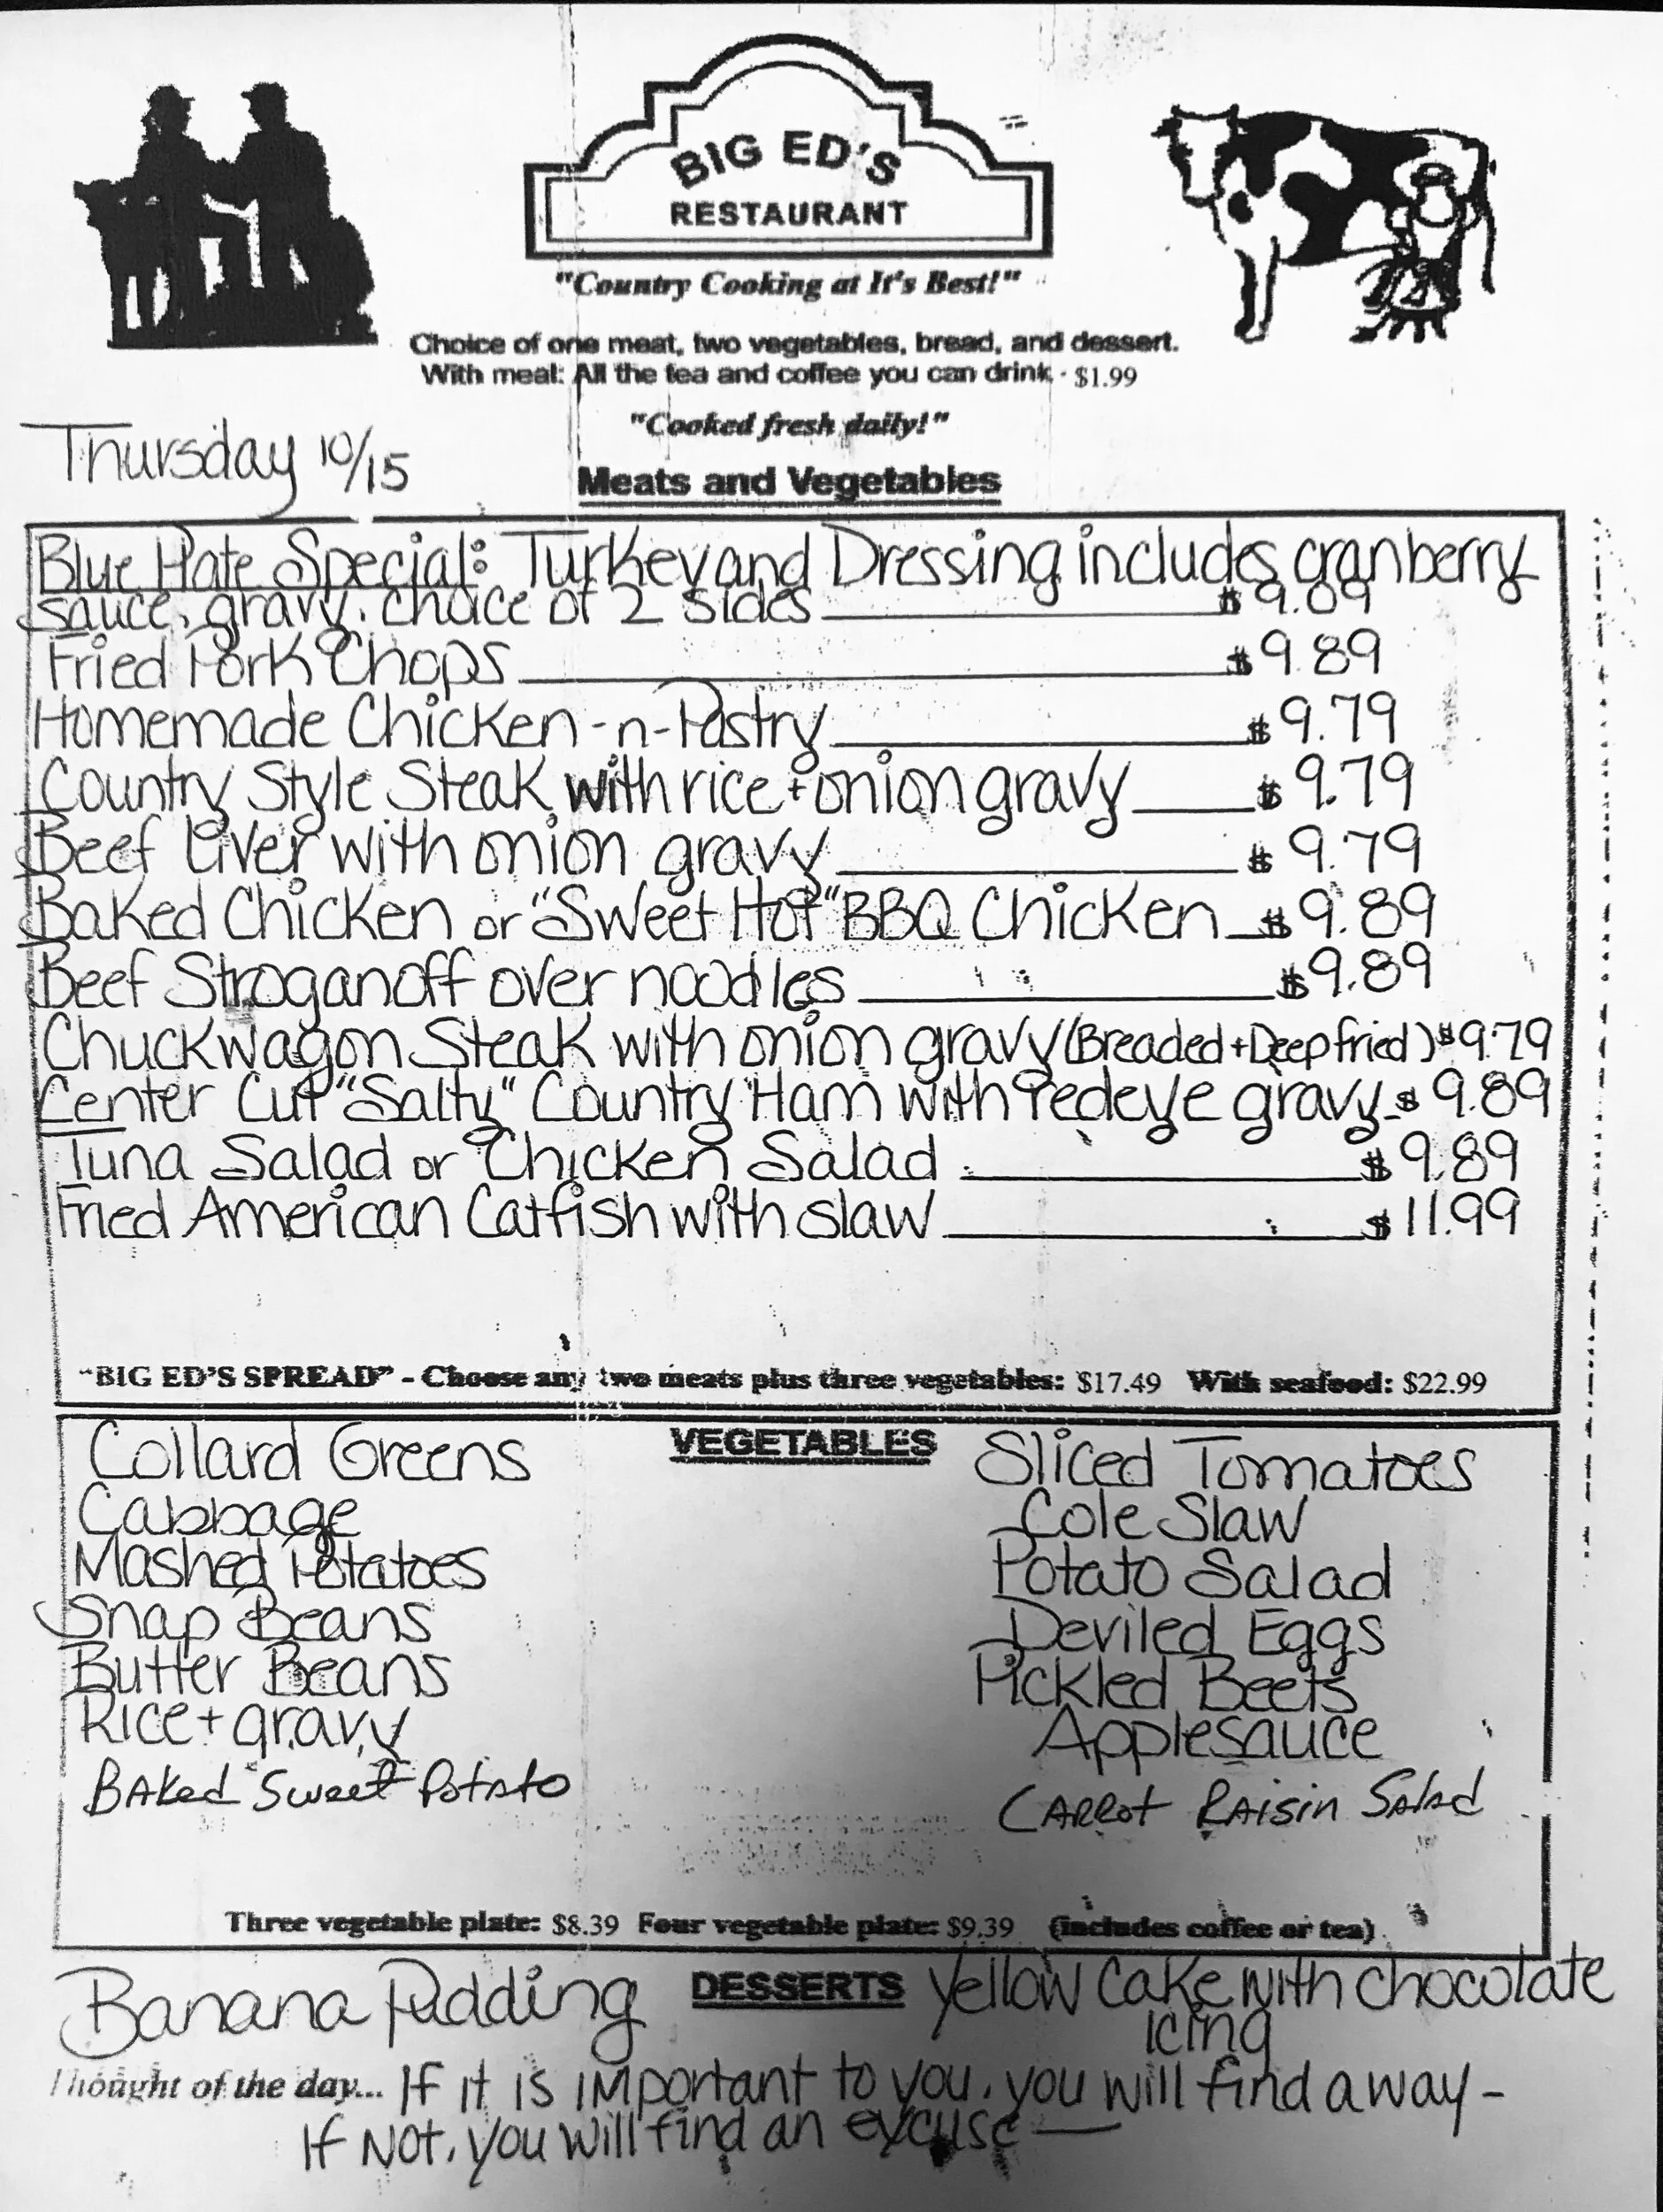 BIG ED'S
RESTAURANT
"Country Cooking at It's Best!"
Choice of one meat, two vegetables, bread, and dessert.
With meal: All the tea and coffee you can drink - $1.99
"Cooked fresh daily!"
Thursday 10/15
Meats and Vegetables
Blue Plate Special: Turkey and Dressing includes cranberry
sauce, gravy, choice of 2 sides $9.89
Fried Pork Chops $9.89
Homemade Chicken-n-Pastry $9.79
Country Style Steak with rice + onion gravy $9.79
Beef Liver with onion gravy $9.79
Baked Chicken or "Sweet Hot" BBQ Chicken $9.89
Beef Stroganoff over noodles $9.89
Chuckwagon Steak with onion gravy (Breaded + Deep fried) $9.79
Center Cut "Salty" Country Ham with redeye gravy $9.89
Tuna Salad or Chicken Salad $9.89
Fried American Catfish with slaw $11.99
"BIG ED'S SPREAD" - Choose any two meats plus three vegetables: $17.49 With seafood: $22.99
VEGETABLES
Collard Greens
Cabbage
Mashed Potatoes
Snap Beans
Butter Beans
Rice + gravy
Baked Sweet Potato
Sliced Tomatoes
Cole Slaw
Potato Salad
Deviled Eggs
Pickled Beets
Applesauce
Carrot Raisin Salad
Three vegetable plate: $8.39 Four vegetable plate: $9.39 (includes coffee or tea)
DESSERTS
Banana Pudding
Yellow Cake with chocolate
icing
Thought of the day... If it is important to you, you will find a way -
If Not, you will find an excuse